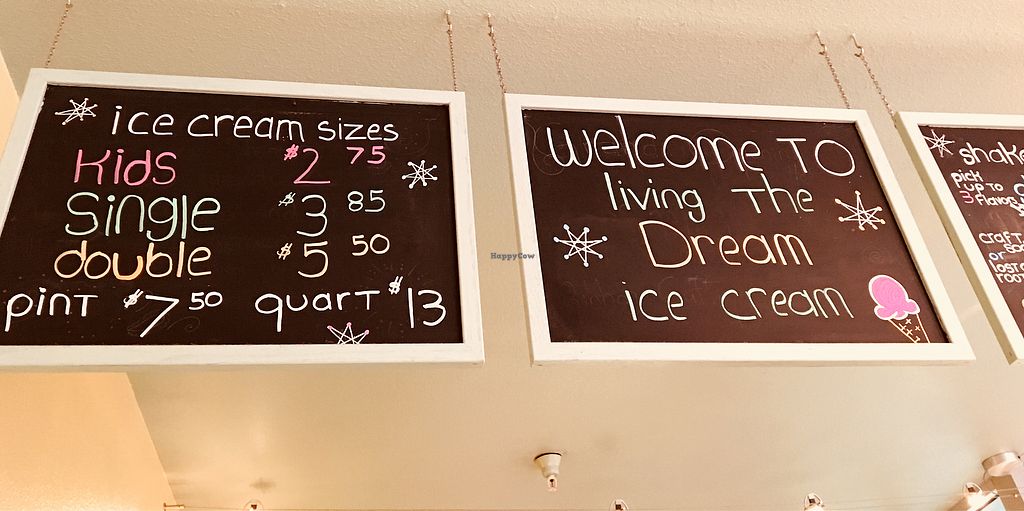 ice cream sizes
Kids $2 75
Single $3 85
double $5 50
pint $7 50 quart $13
welcome To
living The
Dream
ice cream
HappyCow
pick
up to
3 flavor
or